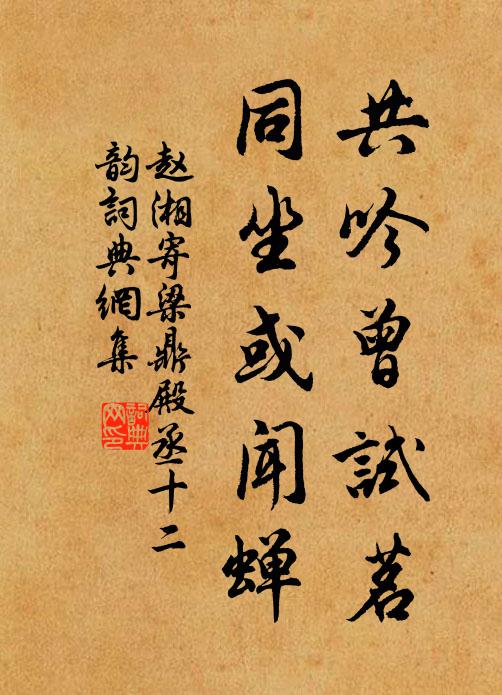 共吟曾試茗
同坐或闻蝉
赵湘寄梁鼎殿丞十二
韵詞典網集
詞典